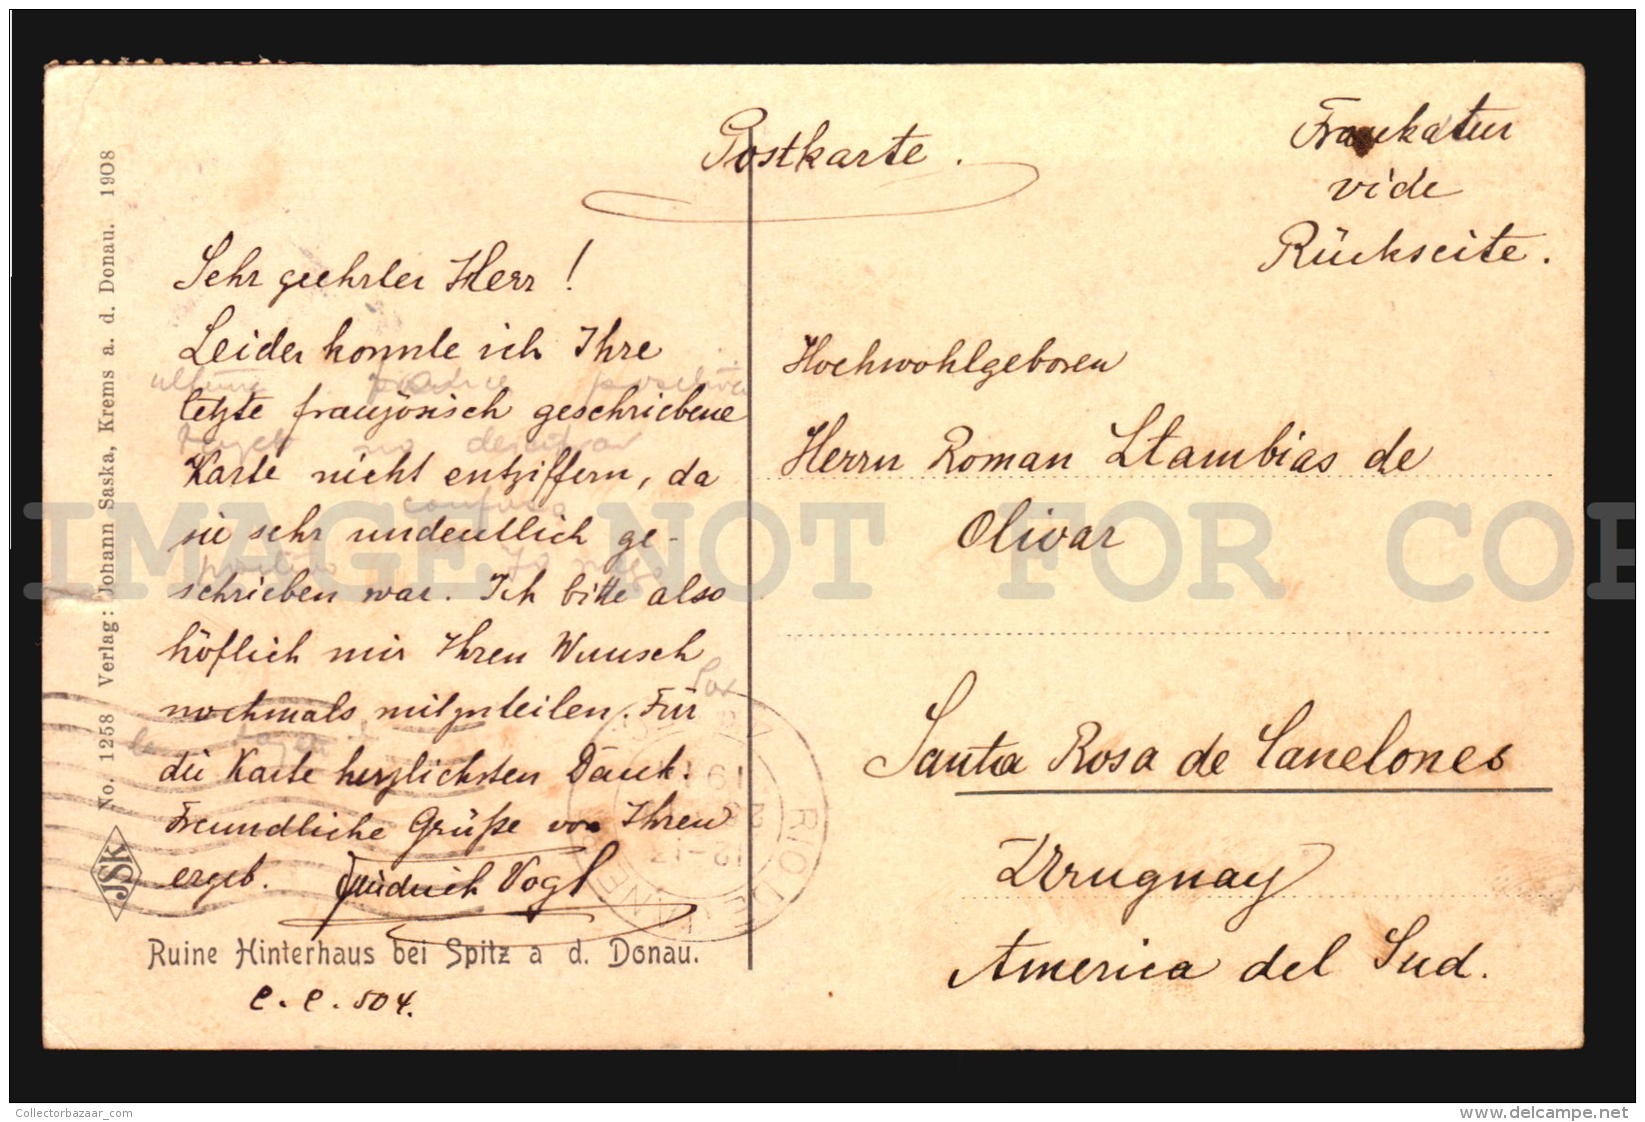 Postkarte.
Frankatur
vide
Rückseite.
Sehr geehrter Herr!
Leider konnte ich Ihre
letzte französisch geschriebene
Karte nicht entziffern, da
sie sehr undeutlich ge-
schrieben war. Ich bitte also
höflich mir Ihren Wunsch
nochmals mitzuteilen. Für
die Karte herzlichsten Dank.
Freundliche Grüße von Ihren
ergeb. Friedrich Vogl
Ruine Hinterhaus bei Spitz a d. Donau.
C.C. 504.
Hochwohlgeboren
Herrn Roman Stambias de
Olivar
Santa Rosa de Canelones
Uruguay
America del Sud.
No. 1258 Verlag: Johann Saska, Krems a. d. Donau. 1908
JSK
IMAGE NOT FOR COP
Collectorbazaar_com
www.delcampe.net